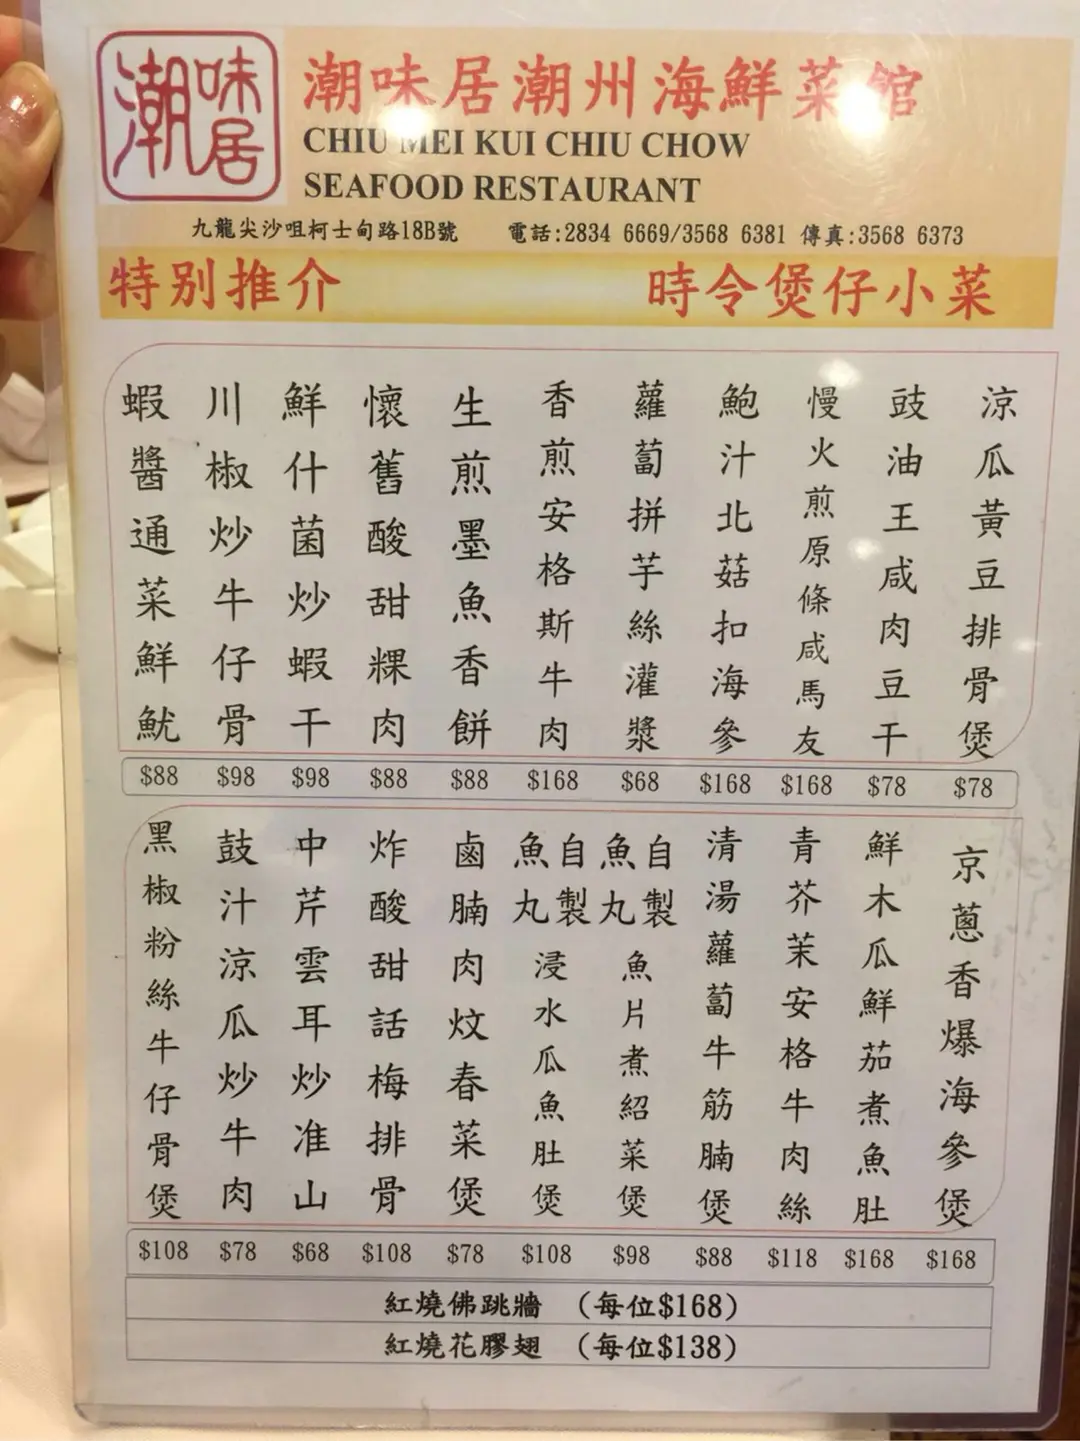 潮味居
潮味居潮州海鮮菜館
CHIU MEI KUI CHIU CHOW
SEAFOOD RESTAURANT
九龍尖沙咀柯士甸路18B號 電話:2834 6669/3568 6381 傳真:3568 6373
特別推介 時令煲仔小菜
涼瓜黃豆排骨煲
豉油王咸肉豆干
慢火煎原條咸馬友
鮑汁北菇扣海參
蘿蔔拼芋絲灌漿
香煎安格斯牛肉
生煎墨魚香餅
懷舊酸甜粿肉
鮮什菌炒蝦干
川椒炒牛仔骨
蝦醬通菜鮮魷
$88 $98 $98 $88 $88 $168 $68 $168 $168 $78 $78
京蔥香爆海參煲
鮮木瓜鮮茄煮魚肚
青芥茉安格牛肉絲
清湯蘿蔔牛筋腩煲
自製魚丸魚片煮紹菜煲
自製魚丸浸水瓜魚肚煲
鹵腩肉炆春菜煲
炸酸甜話梅排骨
中芹雲耳炒准山
鼓汁涼瓜炒牛肉
黑椒粉絲牛仔骨煲
$108 $78 $68 $108 $78 $108 $98 $88 $118 $168 $168
紅燒佛跳牆 (每位$168)
紅燒花膠翅 (每位$138)